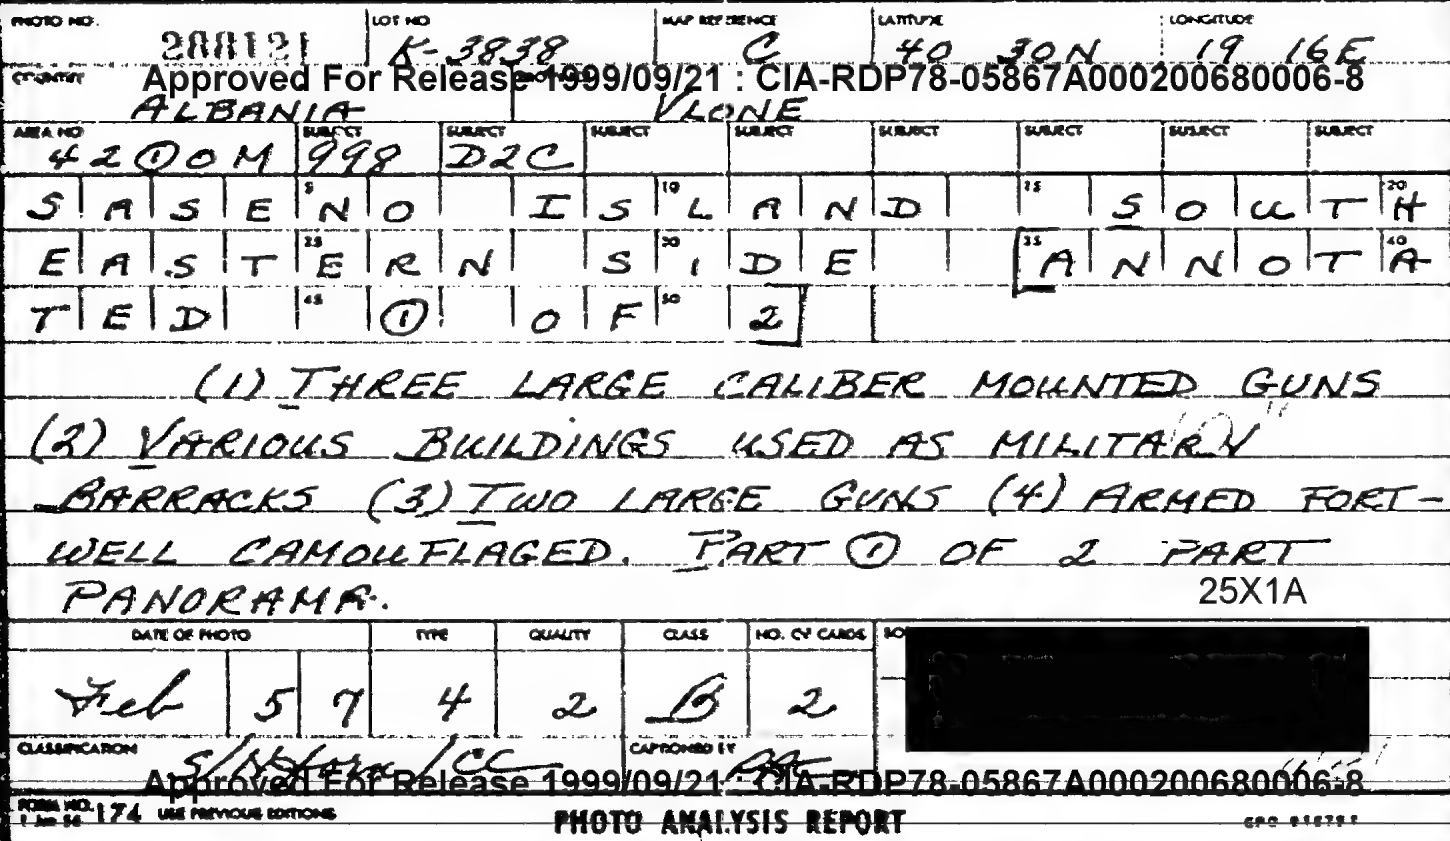 PHOTO NO. LOT NO MAP REFERENCE LATITUDE LONGITUDE
288121 K-3838 C 40 30N 19 16E
COUNTRY Approved For Release 1999/09/21 : CIA-RDP78-05867A000200680006-8
ALBANIA VLONE
AREA NO SUBJECT SUBJECT SUBJECT SUBJECT SUBJECT SUBJECT SUBJECT SUBJECT
42①0M 998 D2C
SASENO ISLAND SOUTH
EASTERN SIDE [ANNOTA
TED ① OF 2]
(1) THREE LARGE CALIBER MOUNTED GUNS
(2) VARIOUS BUILDINGS USED AS MILITARY
BARRACKS (3) TWO LARGE GUNS (4) ARMED FORT-
WELL CAMOUFLAGED. PART ① OF 2 PART
PANORAMA.
25X1A
DATE OF PHOTO TYPE QUALITY CLASS NO. OF CARDS
Feb 57 4 2 B 2
CLASSIFICATION S/Noforn/CC CAPTIONED BY
Approved For Release 1999/09/21 : CIA-RDP78-05867A000200680006-8
FORM NO. 174 USE PREVIOUS EDITIONS
1 Jun 56
PHOTO ANALYSIS REPORT